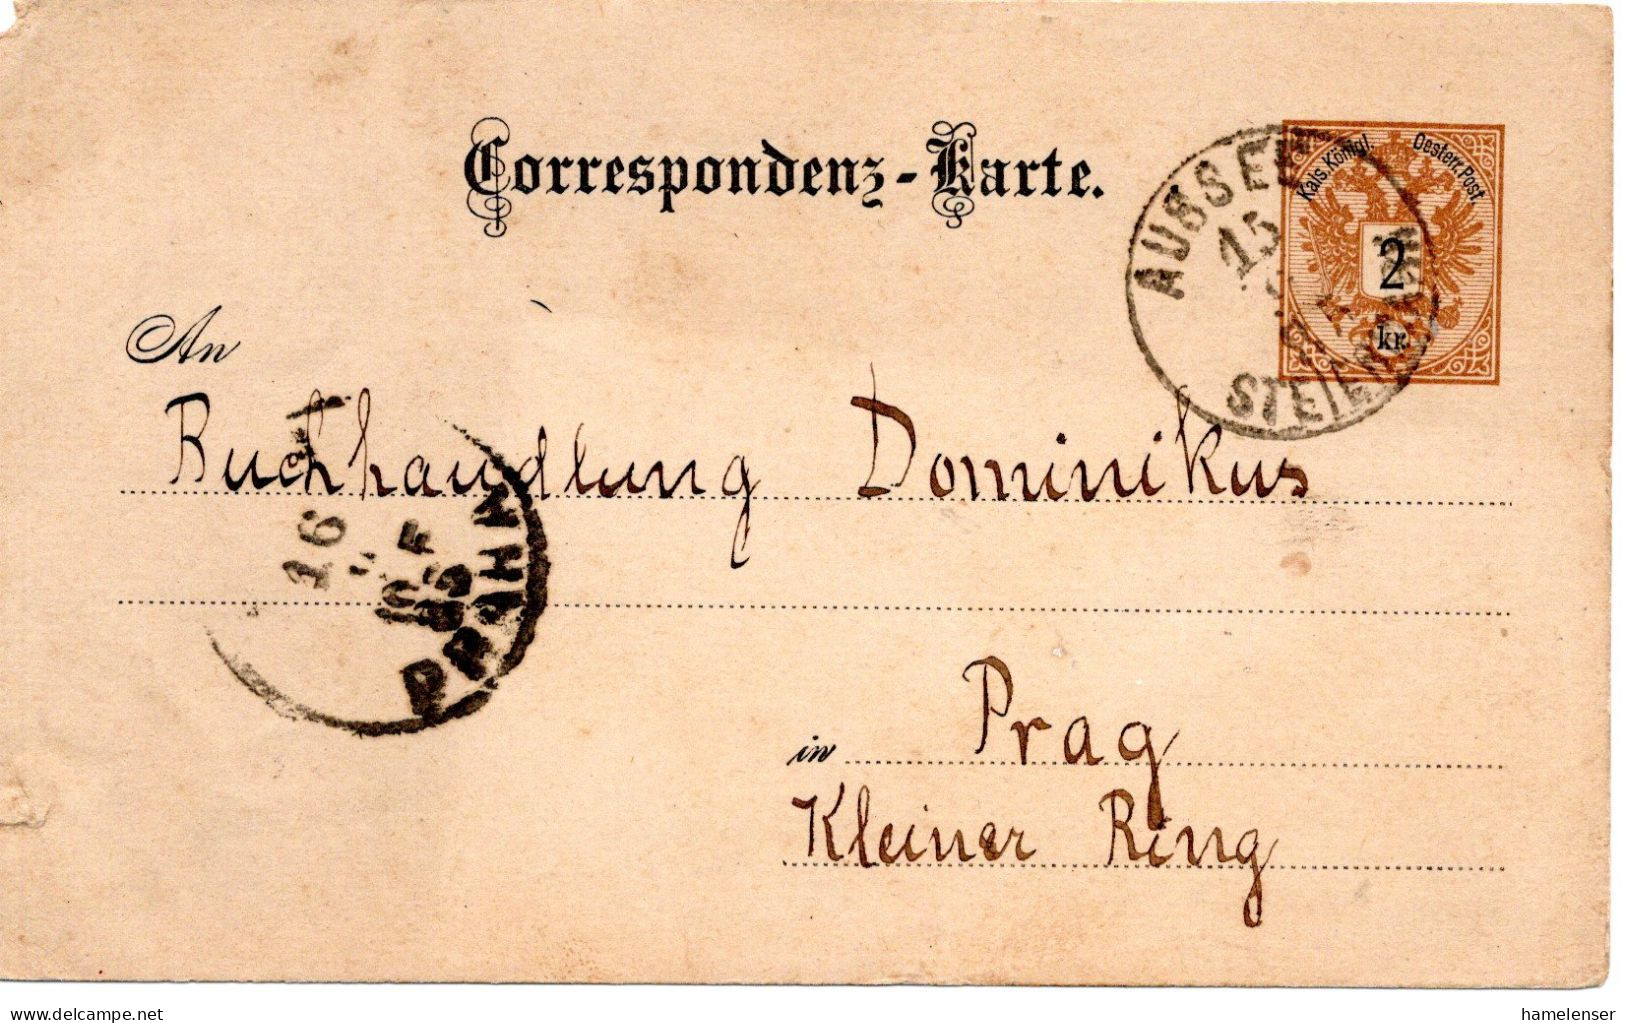 Correspondenz-Karte.
Kais. Königl. Oesterr. Post
2
kr.
AUSSEE
15
STEIERMARK
An
Buchhandlung Dominikus
16
PRAHA
in Prag
Kleiner Ring
www.delcampe.net
hamelenser